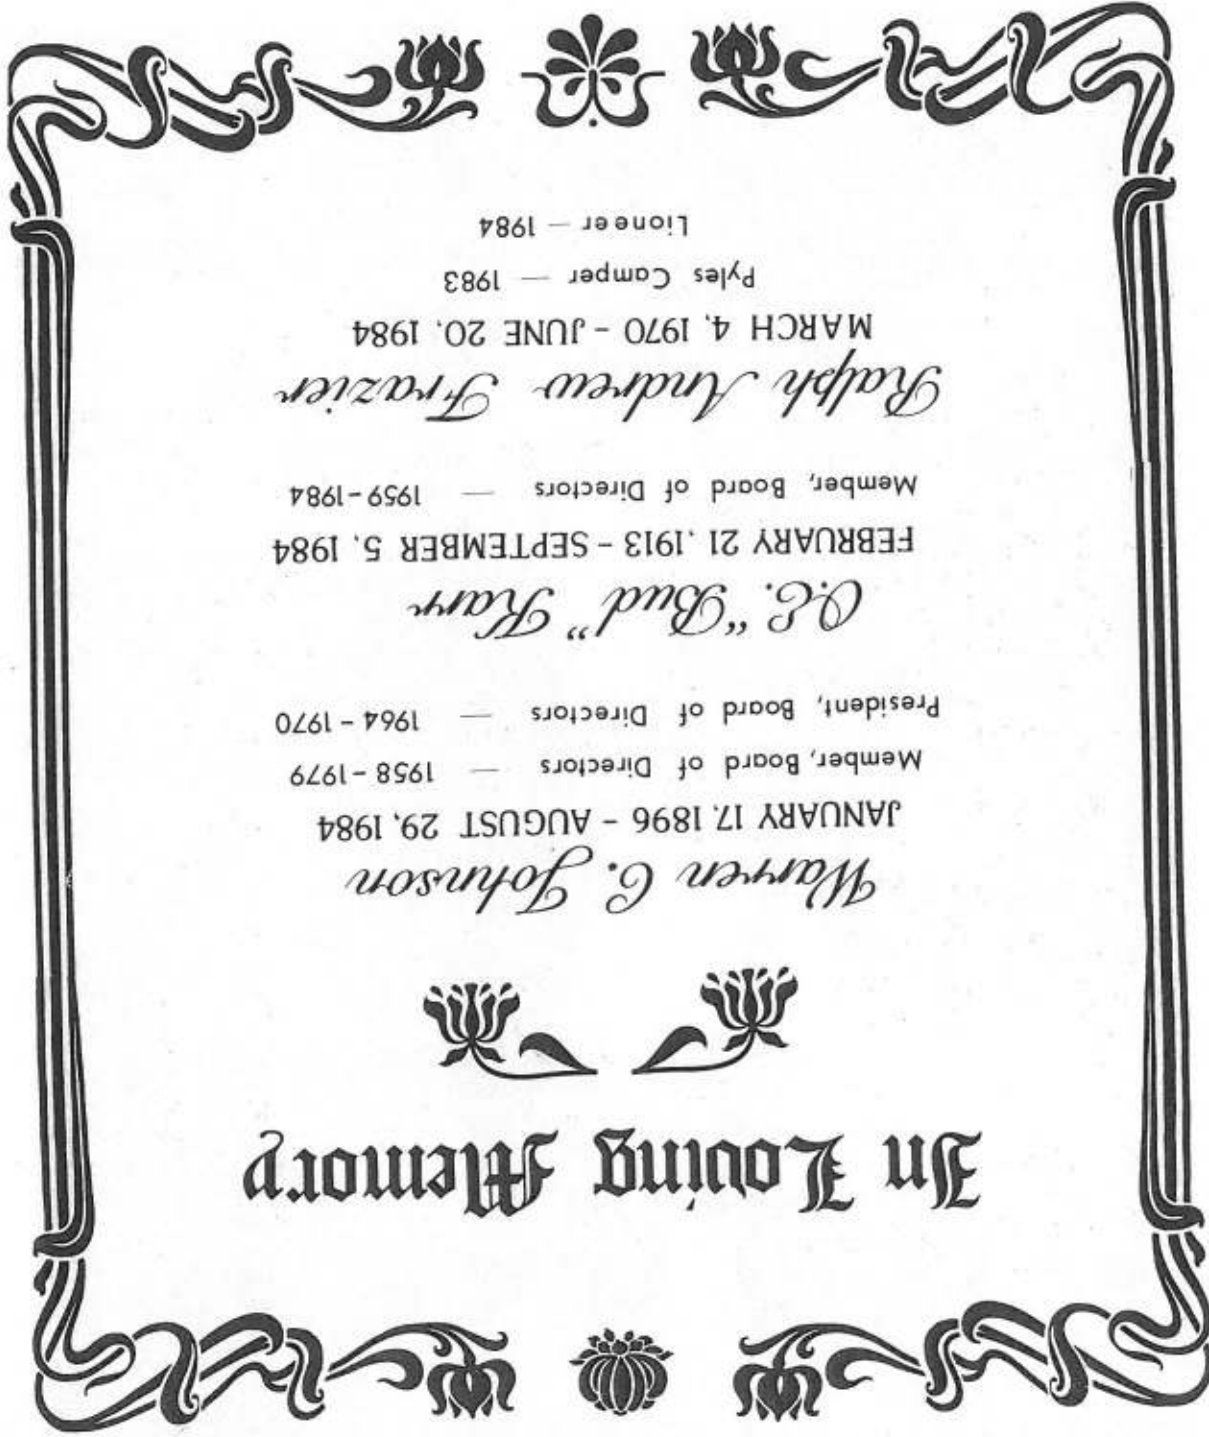 In Loving Memory
Warren C. Johnson
JANUARY 17, 1896 - AUGUST 29, 1984
Member, Board of Directors — 1958-1979
President, Board of Directors — 1964-1970
O.E. "Bud" Karr
FEBRUARY 21, 1913 - SEPTEMBER 5, 1984
Member, Board of Directors — 1959-1984
Ralph Andrew Frazier
MARCH 4, 1970 - JUNE 20, 1984
Pyles Camper — 1983
Lioneer — 1984